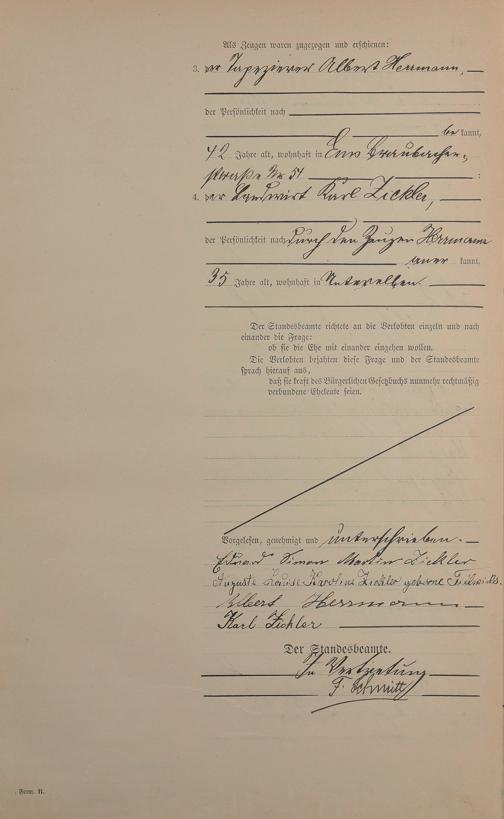 Als Zeugen waren zugezogen und erschienen:
3. der Tapezierer Albert Herrmann,
der Persönlichkeit nach
bekannt,
42 Jahre alt, wohnhaft in Ems Braubacher-
straße Nr 51 ;
4. der Landwirt Karl Zickler,
der Persönlichkeit nach durch den Zeugen Herrmann
anerkannt.
35 Jahre alt, wohnhaft in
Der Standesbeamte richtete an die Verlobten einzeln und nach
einander die Frage:
ob sie die Ehe mit einander eingehen wollen.
Die Verlobten bejahten diese Frage und der Standesbeamte
sprach hierauf aus,
daß sie kraft des Bürgerlichen Gesetzbuchs nunmehr rechtmäßig
verbundene Eheleute seien.
Vorgelesen, genehmigt und unterschrieben.
Eduard Simon Martin Zickler
Auguste Louise Karoline Zickler geborne
Albert Herrmann
Karl Zickler
Der Standesbeamte.
In Vertretung
F. Schmitt
Form. B.